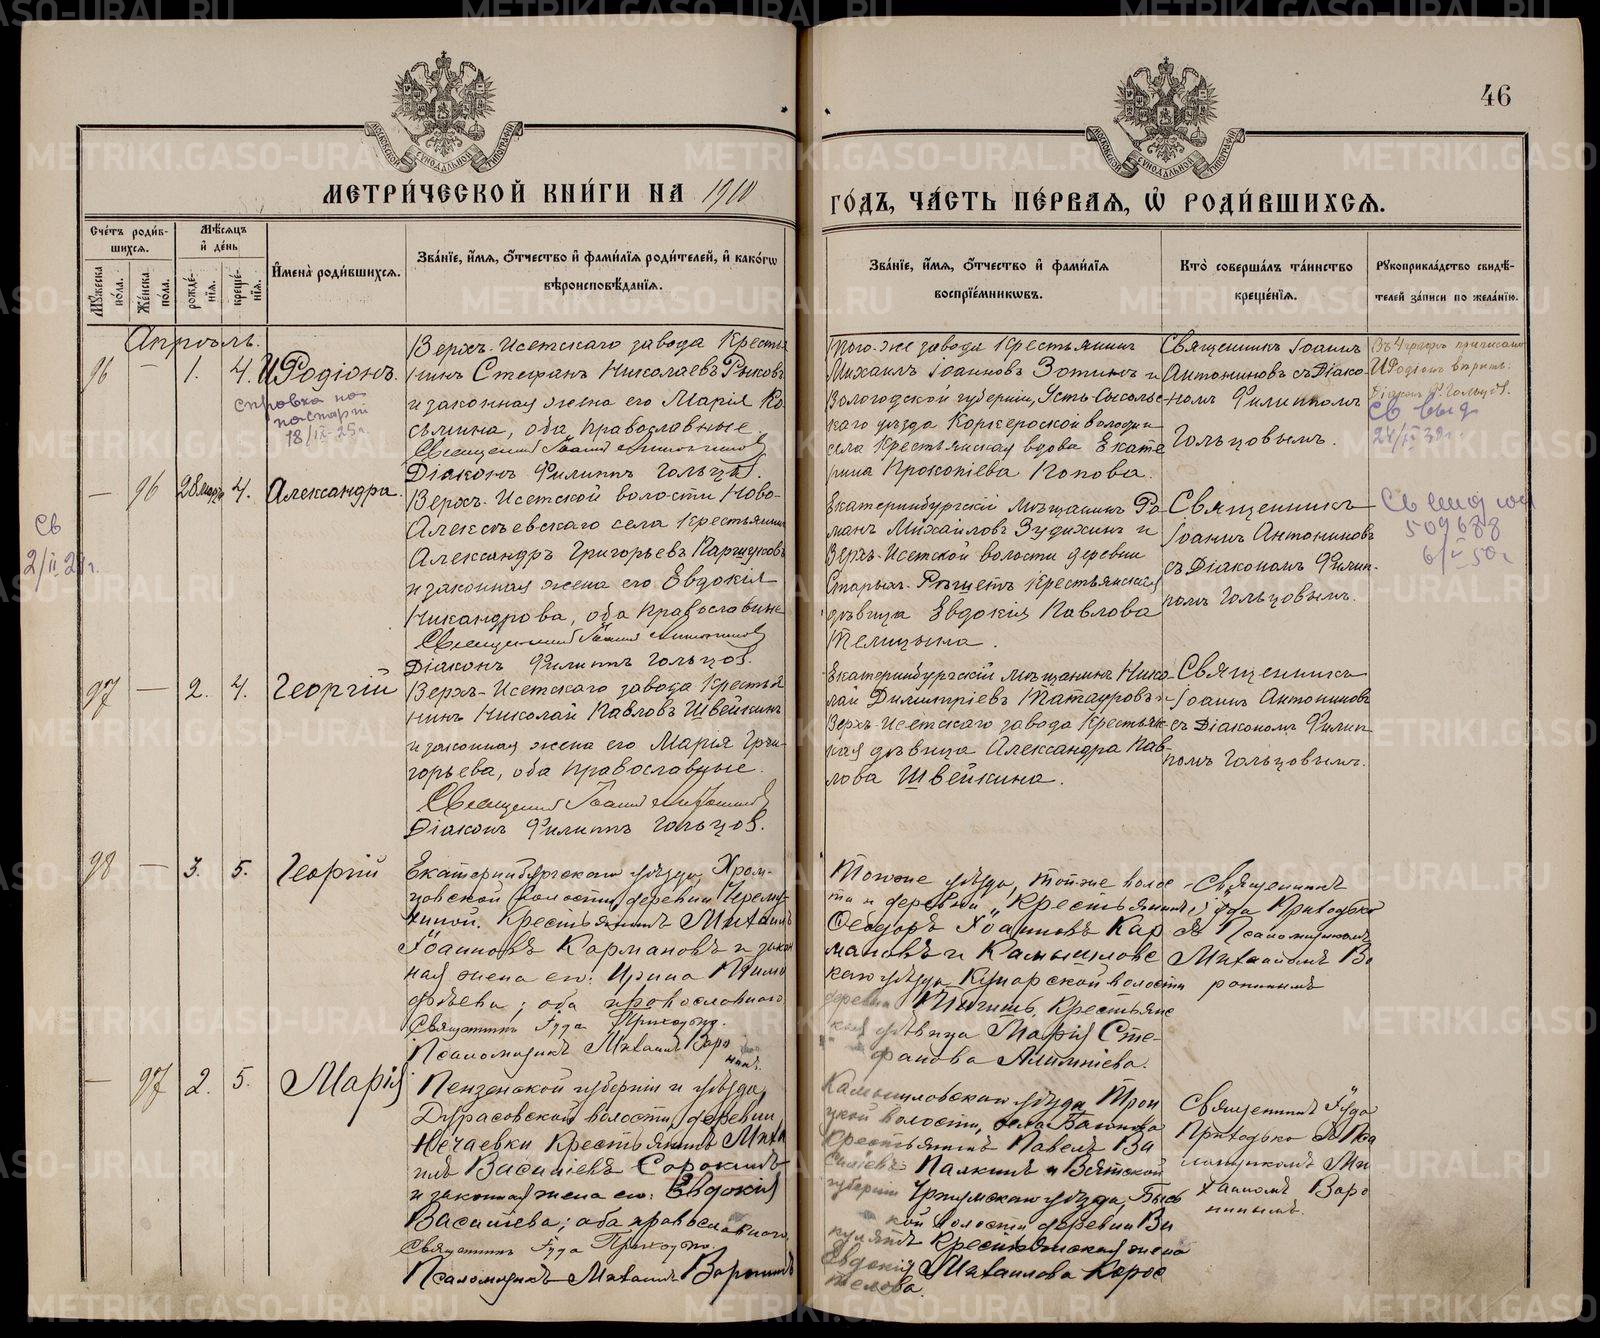 46
МЕТРИ́ЧЕСКОЙ КНИ́ГИ НА 1910
ГО́ДЪ, ЧА́СТЬ ПЕ́РВАЯ, Ѽ РОДИ́ВШИХСЯ.
Сче́тъ роди́вшихся.
Му́жеска по́ла.
Же́нска по́ла.
Мѣ́сяцъ и̂ де́нь
рожде́нїя.
креще́нїя.
И̂мена̀ роди́вшихся.
Зва́нїе, и́мя, о́тчество и̂ фами́лїя роди́телей, и̂ како́гѡ
вѣроисповѣ́данїя.
Зва́нїе, и́мя, о́тчество и̂ фами́лїя
воспрїе́мникѡвъ.
Кто̀ соверша́лъ та́инство
креще́нїя.
Рꙋкоприкла́дство свидѣ́-
телей за́писи по жела́нїю.
Апрѣль.
96 — 1. 4. ИРодіонъ.
справка на
18/IX-25г.
Верхъ-Исетскаго завода Крестья
нинъ Стефанъ Николаевъ Рыковъ
и законная жена его Марія Ко
сьмина, оба православные.
Священникъ Іоаннъ Антониновъ
Діаконъ Филиппъ Гольцовъ.
того-же завода Крестьянинъ
Михаилъ Іоанновъ Зотинъ и
Вологодской губерніи, Усть-Сысольс
каго уѣзда Корткероской волости и
села Крестьянская вдова Екате
рина Прокопіева Попова.
Священникъ Іоаннъ
Антониновъ съ Діако-
номъ Филиппомъ
Гольцовымъ.
Въ 4 графѣ приписано
ИРодіонъ вѣрить.
Діаконъ Ф. Гольцовъ.
Св выд
— 96 28 марта 4. Александра.
Св
2/II
Верхъ-Исетской волости Ново-
Алексѣевскаго села Крестьянинъ
Александръ Григорьевъ Каргиуковъ
и законная жена его Евдокія
Никандрова, оба православные
Священникъ Іоаннъ Антониновъ
Діаконъ Филиппъ Гольцов.
Екатеринбургскій мѣщанинъ Ро
манъ Михайловъ Зудихинъ и
Верхъ-Исетской волости деревни
Старыхъ-Рѣшетъ Крестьянская
дѣвица Евдокія Павлова
Телицына.
Священникъ
Іоаннъ Антониновъ
съ Діакономъ Филип-
помъ Гольцовымъ.
509688
6/V 50г
97 — 2. 4. Георгій
Верхъ-Исетскаго завода Крестья
нинъ Николай Павловъ Швейкинъ
и законная жена его Марія Гри-
горьева, оба православные.
Священникъ Іоаннъ Антониновъ
Діаконъ Филиппъ Гольцов.
Екатеринбургскій мѣщанинъ Нико-
лай Димитріевъ Татауровъ и
Верхъ-Исетскаго завода Крестьянс-
кая дѣвица Александра Пав-
лова Швейкина.
Священникъ
Іоаннъ Антониновъ
съ Діакономъ Филип-
помъ Гольцовымъ.
98 — 3. 5. Георгій
Екатеринбургскаго уѣзда, Хром-
цовской волости, деревни
Крестьянинъ Михаилъ
Іоанновъ Кармановъ и закон
ная жена его: Ирина Тимо
фѣева; оба православнаго
Священникъ Іуда Приходько.
Псаломщикъ Михаилъ Воро
нинъ.
Тогоже уѣзда, тойже волос
ти и деревни Крестьянинъ
Ѳеодоръ Іоанновъ Кар
мановъ и Камышловс
каго уѣзда, Кунарской волости
деревни Крестьянс
кая дѣвица Марія Сте-
фанова Алимпіева.
Священникъ
Іуда Приходько
съ Псаломщикомъ
Михаиломъ Во
ронинымъ
— 97 2. 5. Марія
Пензенской губерніи и уѣзда,
Дурасовской волости, деревни
Нечаевки Крестьянинъ Миха
илъ Василіевъ Сорокинъ
и законная жена его: Евдокія
Васильева; оба православнаго
Священникъ Іуда Приходько.
Псаломщикъ Михаилъ Воронинъ
Камышловскаго уѣзда Трои
цкой волости, села
Крестьянинъ Павелъ Ва
силіевъ Палкинъ и Вятской
губерніи Уржумскаго уѣзда,
кой волости деревни
Крестьянская жена
Евдокія Михаилова Корос
телева.
Священникъ Іуда
Приходько съ Пса
ломщикомъ Ми
хаиломъ Воро
нинымъ.
METRIKI.GASO-URAL.RU